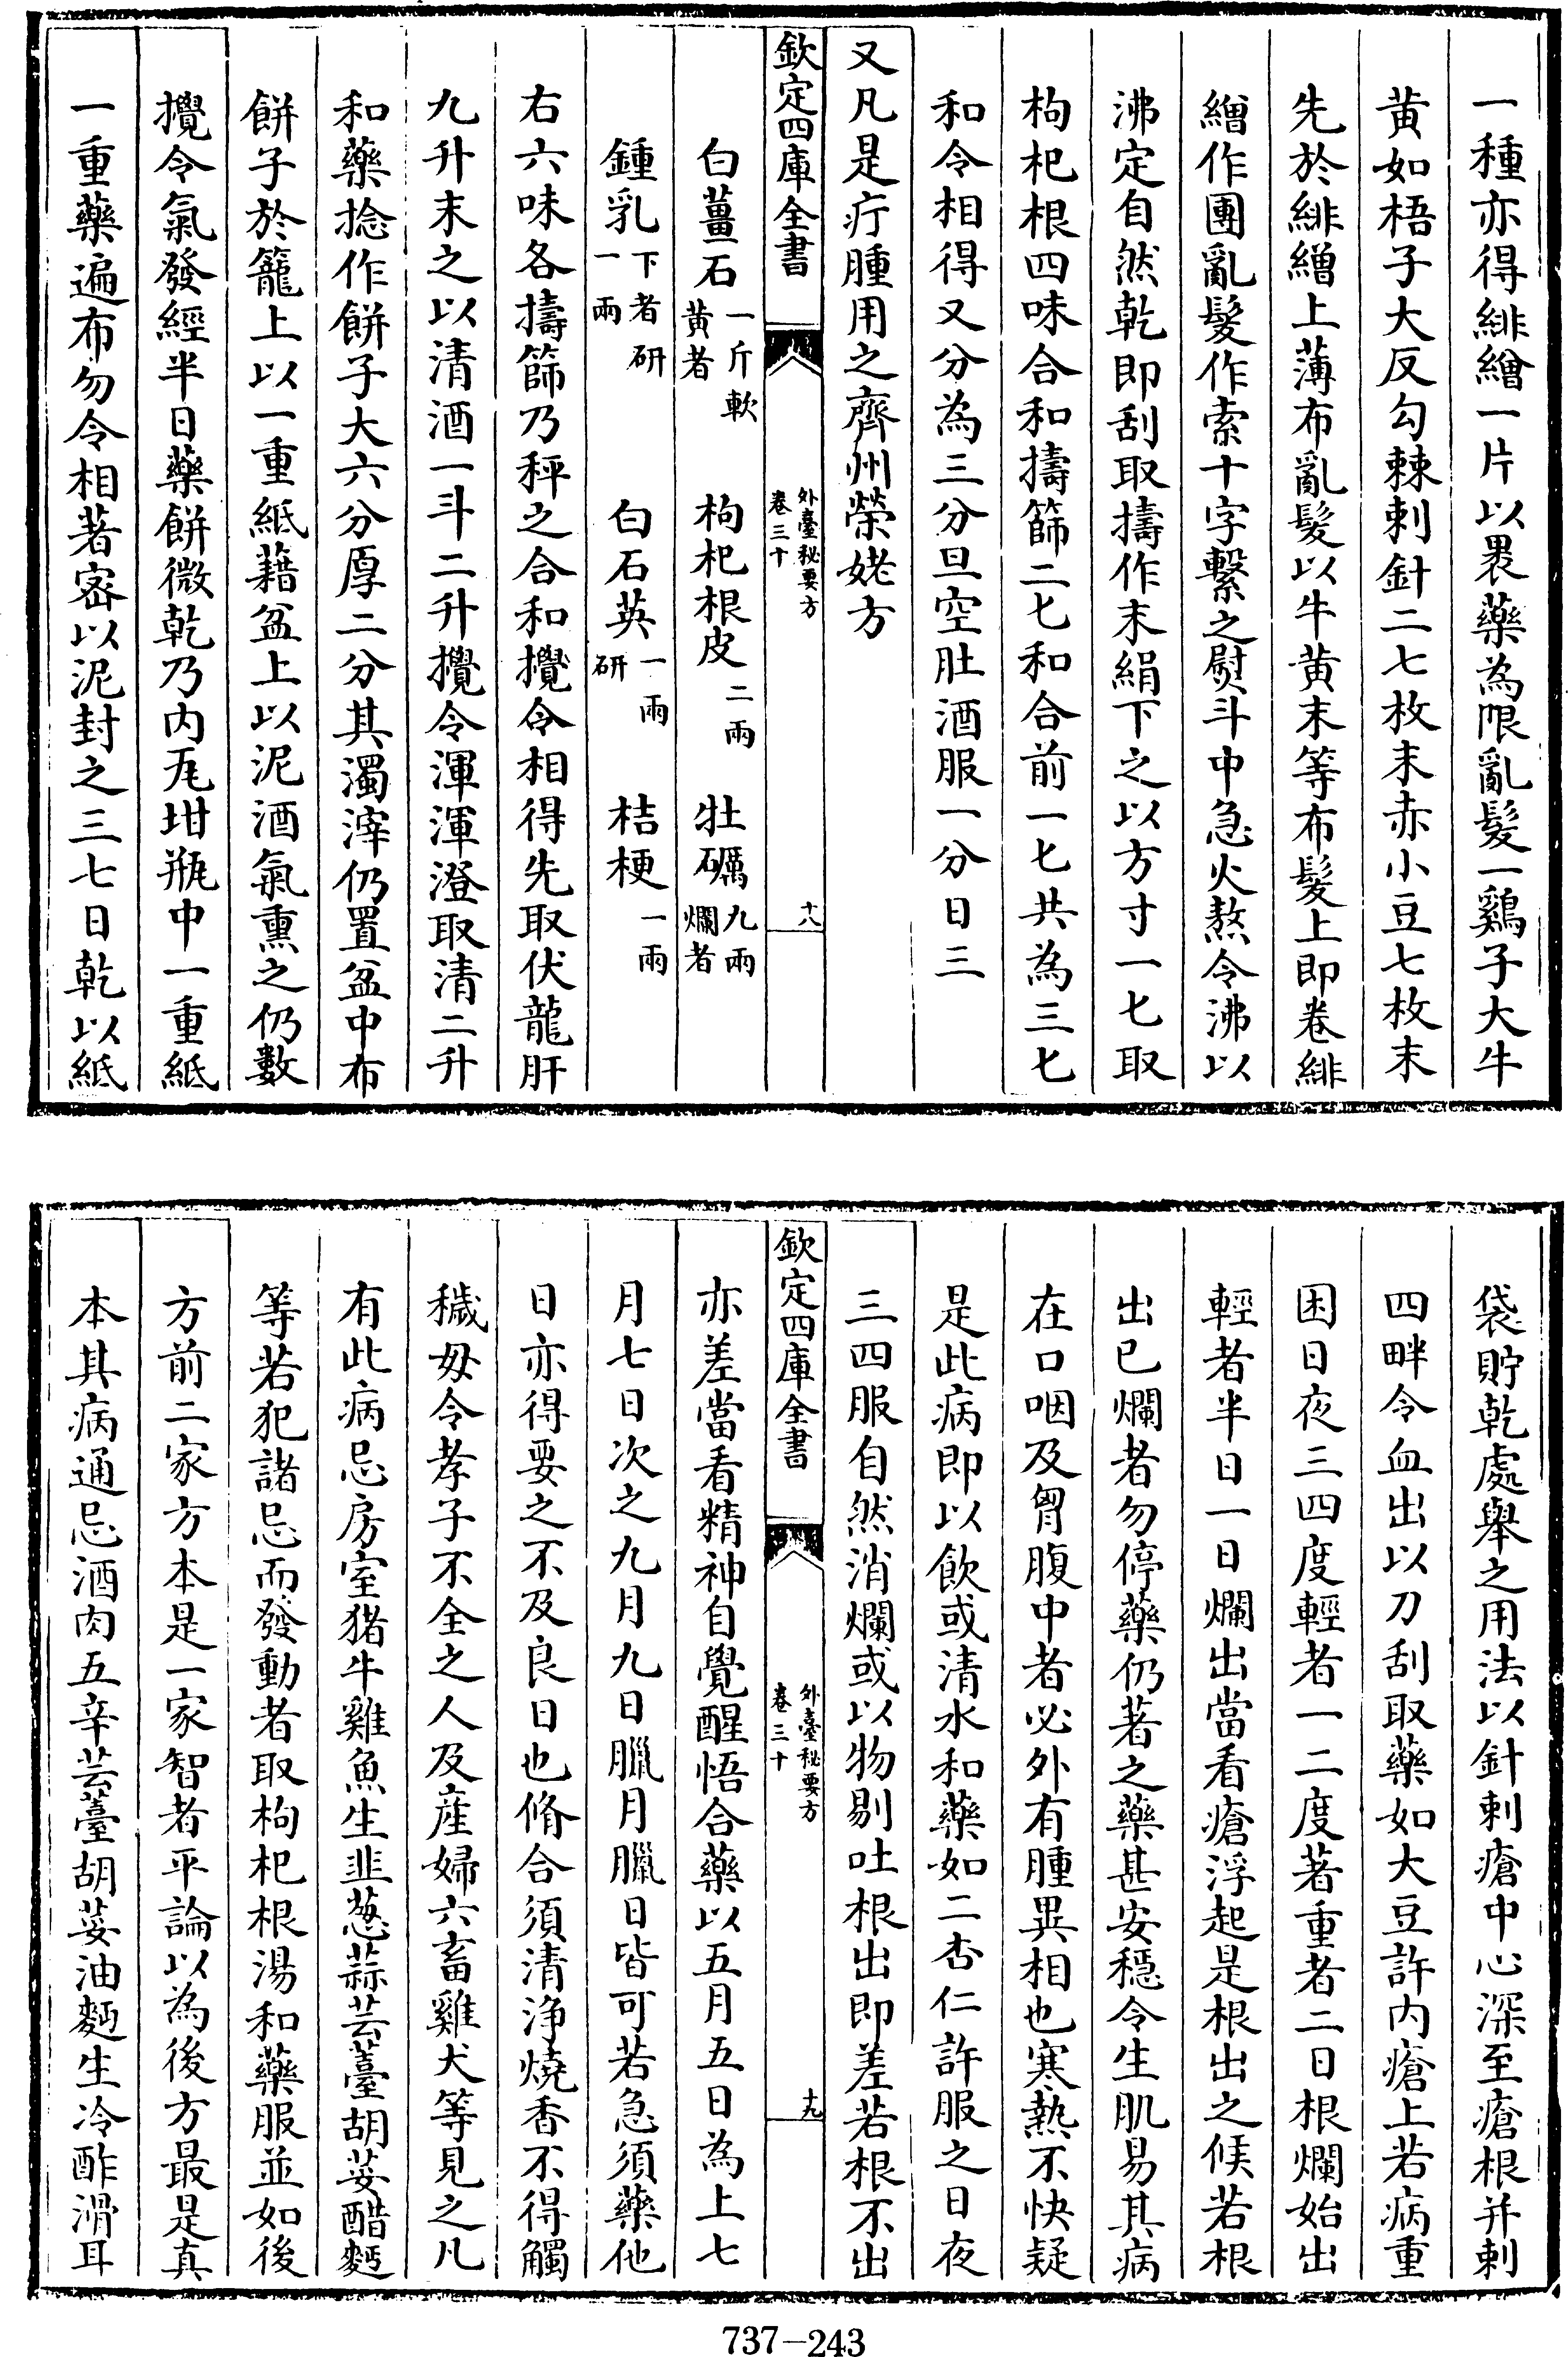 一種亦得緋繒一片以褁藥為限亂髮一鷄子大牛
黄如梧子大反勾棘刺針二七枚末赤小豆七枚末
先於緋繒上薄布亂髮以牛黄末等布髮上即卷緋
繒作團亂髮作索十字繫之熨斗中急火熬令沸以
沸定自然乾即刮取擣作末絹下之以方寸一匕取
枸杞根四味合和擣篩二匕和合前一匕共為三匕
和令相得又分為三分旦空肚酒服一分日三
又凡是疔腫用之齊州榮姥方
欽定四庫全書
外臺秘要方
卷三十
十八
白薑石一斤軟黄者 枸杞根皮二兩 牡礪九兩爛者
鍾乳下者研一兩 白石英一兩研 桔梗一兩
右六味各擣篩乃秤之合和攪令相得先取伏龍肝
九升末之以清酒一斗二升攪令渾渾澄取清二升
和藥捻作餅子大六分厚二分其濁滓仍置盆中布
餅子於籠上以一重紙藉盆上以泥酒氣熏之仍數
攪令氣發經半日藥餅微乾乃内瓦坩瓶中一重紙
一重藥遍布勿令相著密以泥封之三七日乾以紙
袋貯乾處舉之用法以針刺瘡中心深至瘡根并刺
四畔令血出以刀刮取藥如大豆許内瘡上若病重
困日夜三四度輕者一二度著重者二日根爛始出
輕者半日一日爛出當看瘡浮起是根出之候若根
出已爛者勿停藥仍著之藥甚安穏令生肌易其病
在口咽及胷腹中者必外有腫異相也寒熱不快疑
是此病即以飲或清水和藥如二杏仁許服之日夜
三四服自然消爛或以物剔吐根出即差若根不出
欽定四庫全書
外臺秘要方
卷三十
十九
亦差當看精神自覺醒悟合藥以五月五日為上七
月七日次之九月九日臘月臘日皆可若急須藥他
日亦得要之不及良日也脩合須清浄燒香不得觸
穢毋令孝子不全之人及産婦六畜雞犬等見之凡
有此病忌房室猪牛雞魚生韭葱蒜芸薹胡荽醋麪
等若犯諸忌而發動者取枸杞根湯和藥服並如後
方前二家方本是一家智者平論以為後方最是真
本其病通忌酒肉五辛芸薹胡荽油麪生冷酢滑耳
737-243